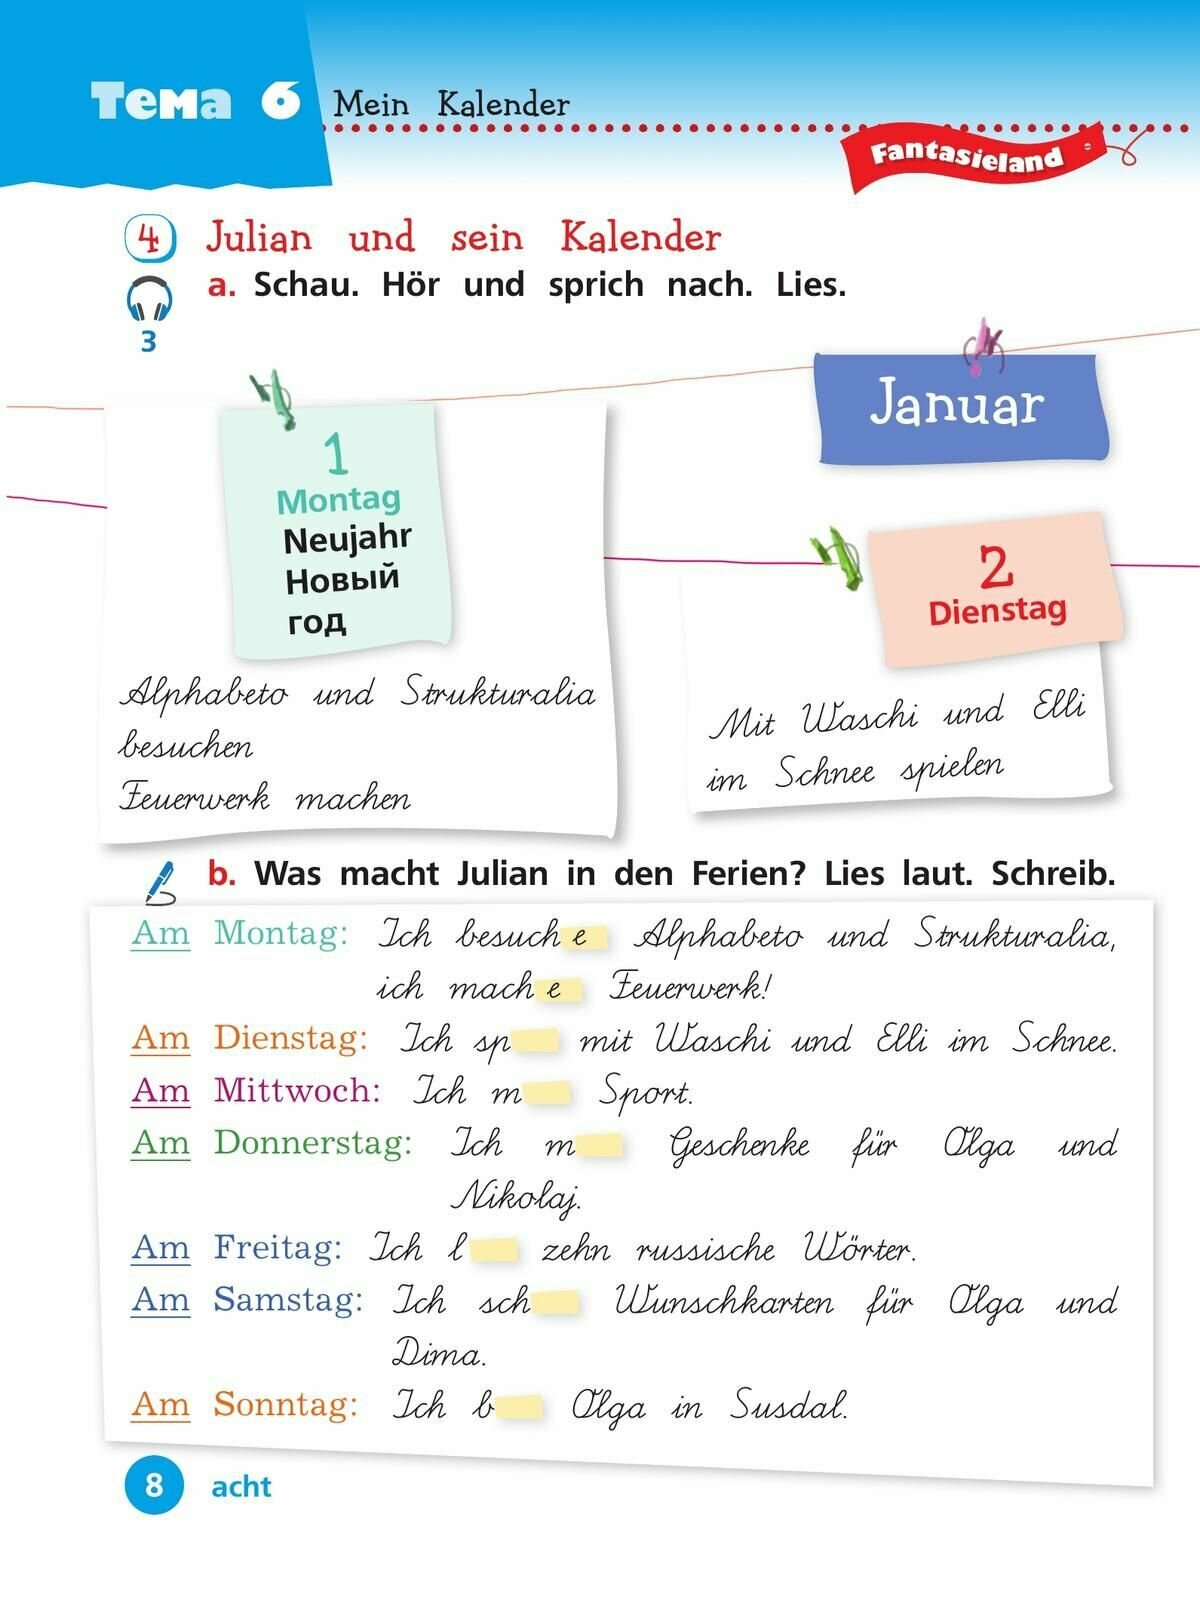 Тема 6 Mein Kalender
Fantasieland
4 Julian und sein Kalender
a. Schau. Hör und sprich nach. Lies.
3
Januar
1
Montag
Neujahr
Новый
год
Alphabeto und Strukturalia
besuchen
Feuerwerk machen
2
Dienstag
Mit Waschi und Elli
im Schnee spielen
b. Was macht Julian in den Ferien? Lies laut. Schreib.
Am Montag: Ich besuche Alphabeto und Strukturalia,
ich mache Feuerwerk!
Am Dienstag: Ich sp mit Waschi und Elli im Schnee.
Am Mittwoch: Ich m Sport.
Am Donnerstag: Ich m Geschenke für Olga und
Nikolaj.
Am Freitag: Ich l zehn russische Wörter.
Am Samstag: Ich sch Wunschkarten für Olga und
Dima.
Am Sonntag: Ich b Olga in Susdal.
8 acht